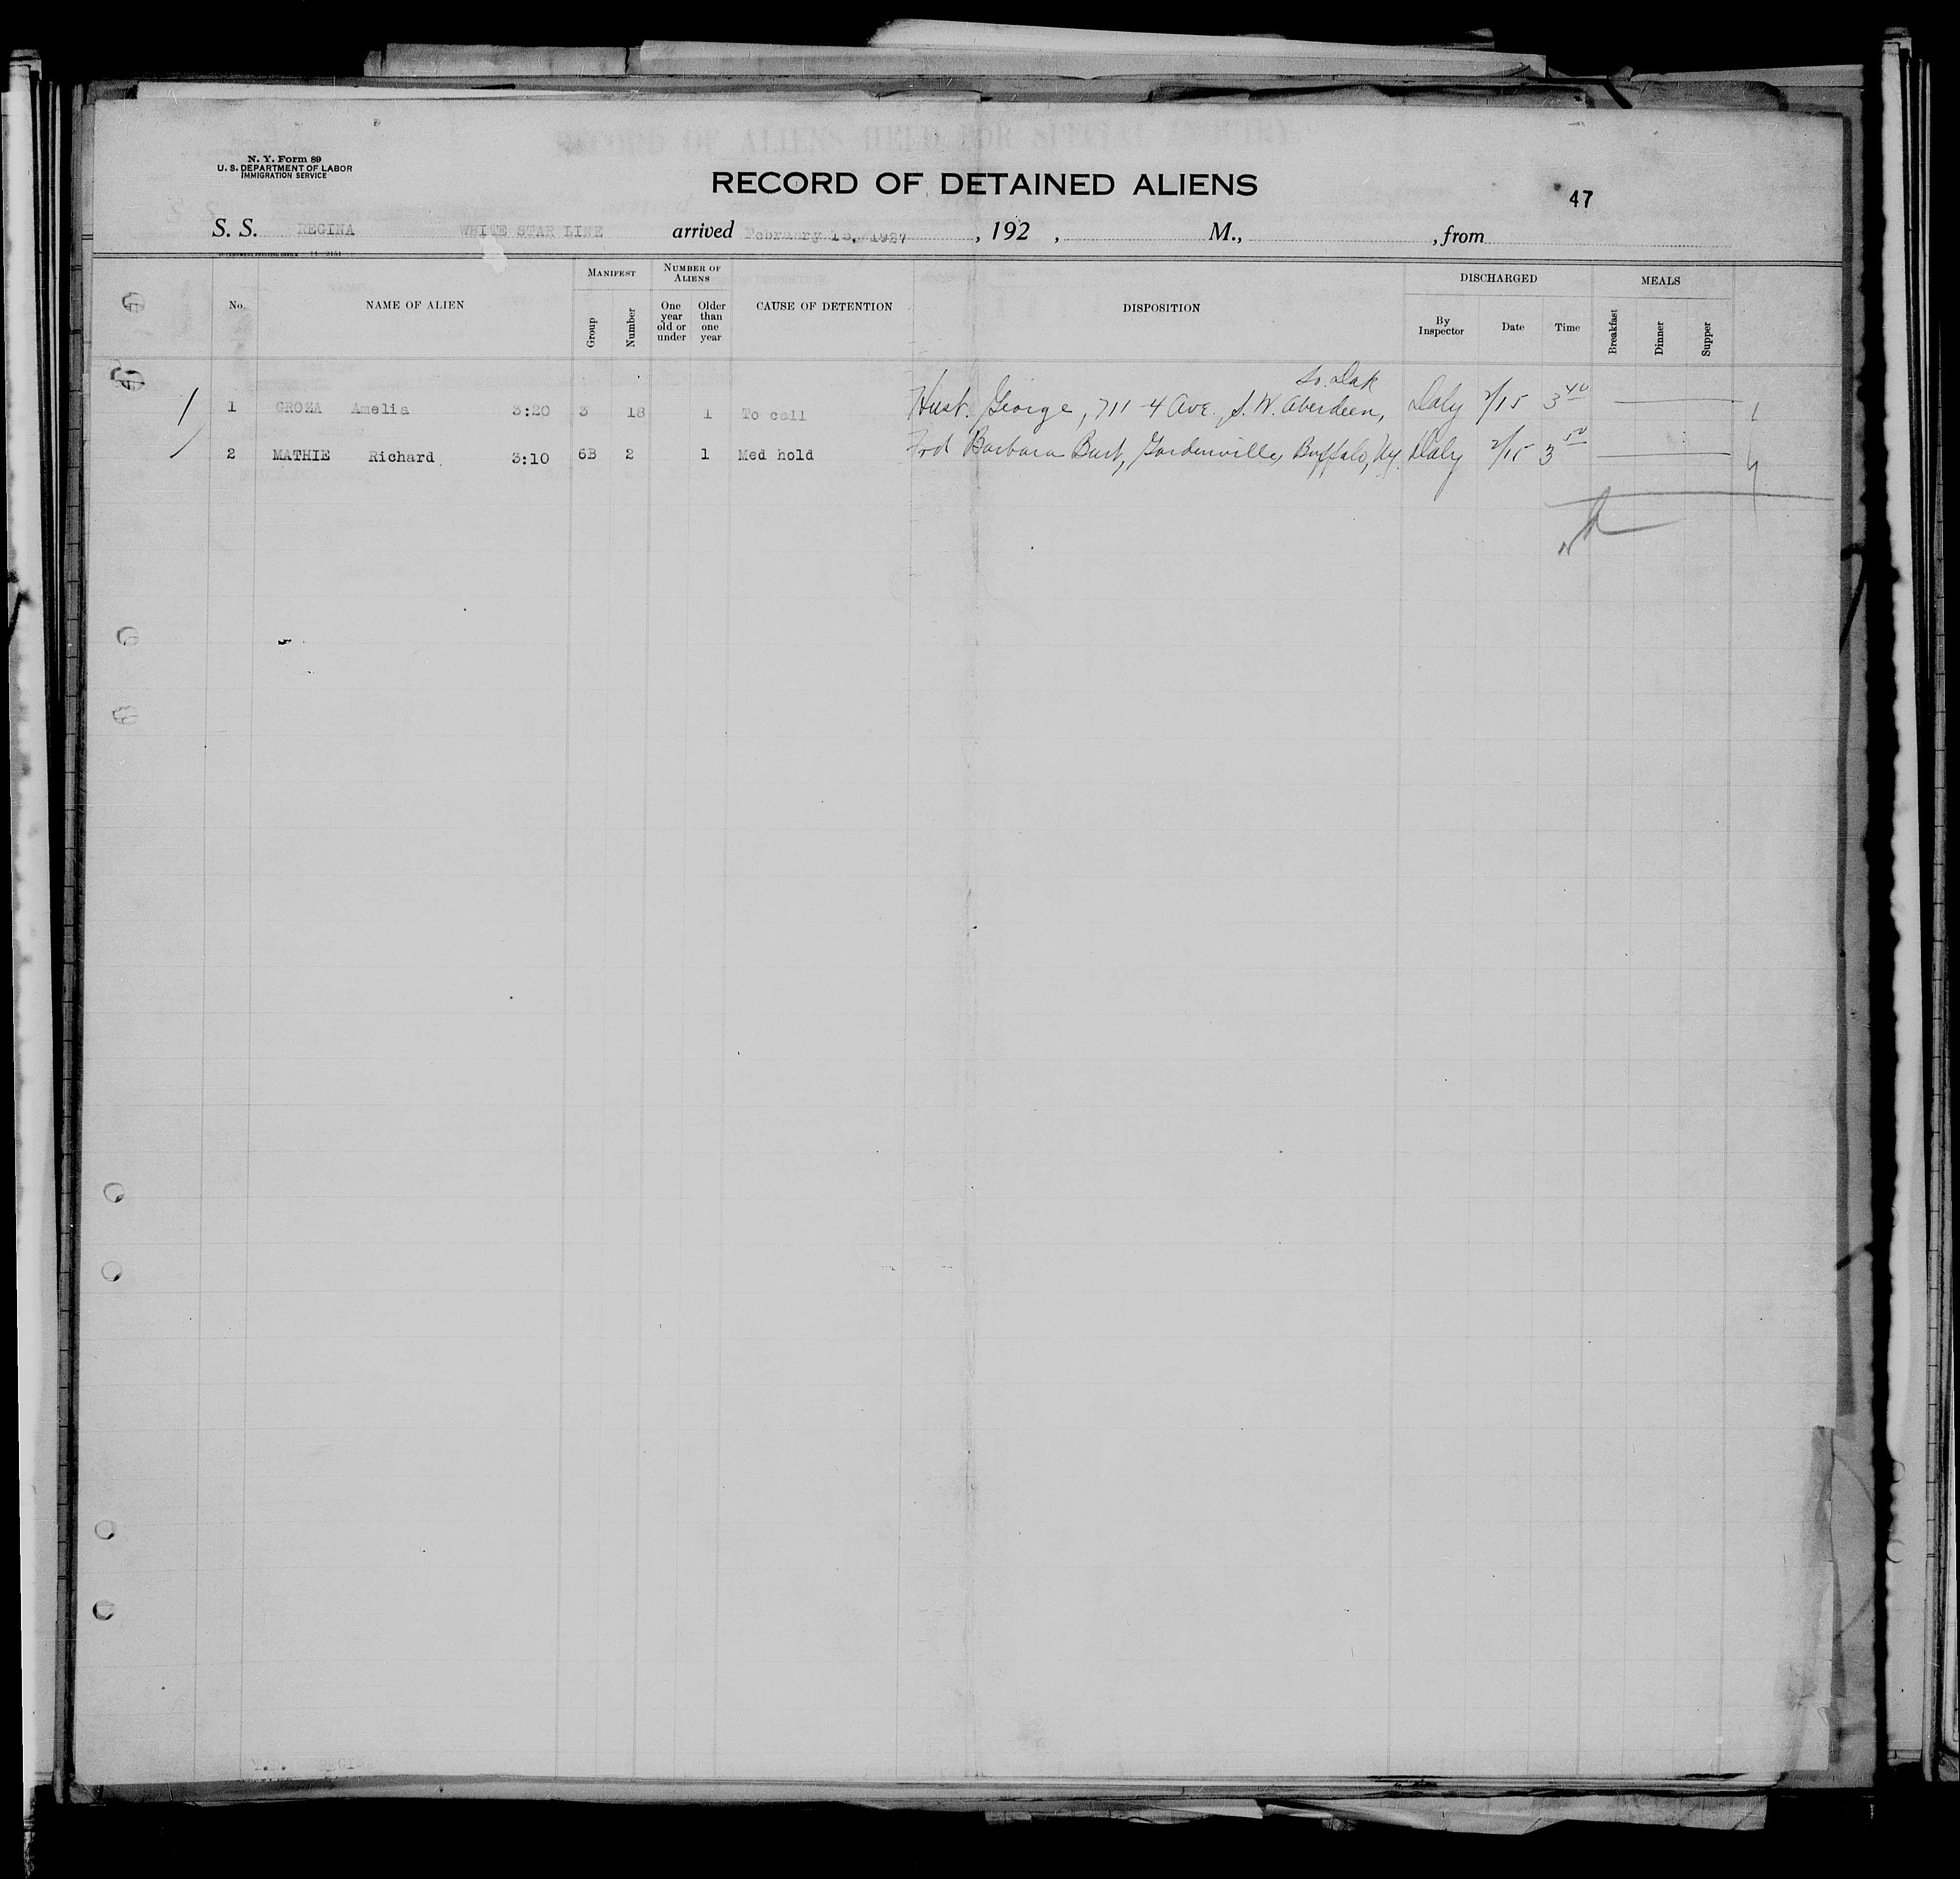 N. Y. Form 89
U. S. DEPARTMENT OF LABOR
IMMIGRATION SERVICE
RECORD OF ALIENS HELD FOR SPECIAL INQUIRY
RECORD OF DETAINED ALIENS
47
S. S. REGINA WHITE STAR LINE arrived February 1927 , 192 , M., , from
No. NAME OF ALIEN MANIFEST Group Number NUMBER OF ALIENS One year old or under Older than one year CAUSE OF DETENTION DISPOSITION DISCHARGED By Inspector Date Time MEALS Breakfast Dinner Supper
So. Dak
1 GROZA Amelia 3:20 3 18 1 To call Husb. George, 711-4 Ave., S. W. Aberdeen, Daly 2/15 3 40
2 MATHIE Richard 3:10 6B 2 1 Med hold Frd Barbara Gardenville, Buffalo, Ny. Daly 2/15 3 50